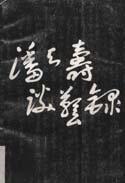 潘天壽
談藝錄